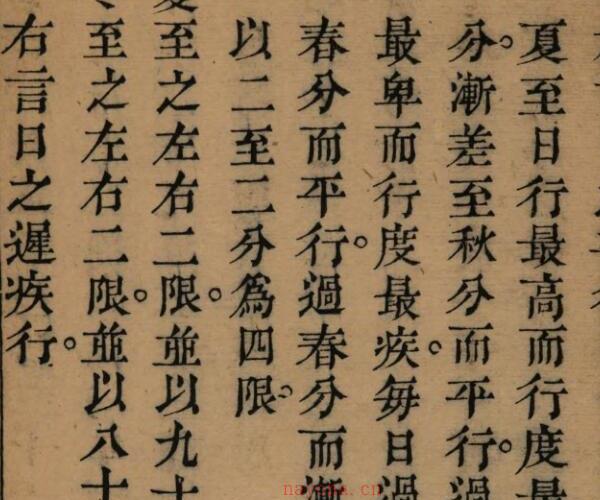 夏至日行最高而行度最
分。漸差至秋分而平行。過
最卑而行度最疾。每日過
春分而平行。過春分而漸
以二至二分爲四限。
夏至之左右二限。並以九十
冬至之左右二限。並以八十
右言日之遲疾行。